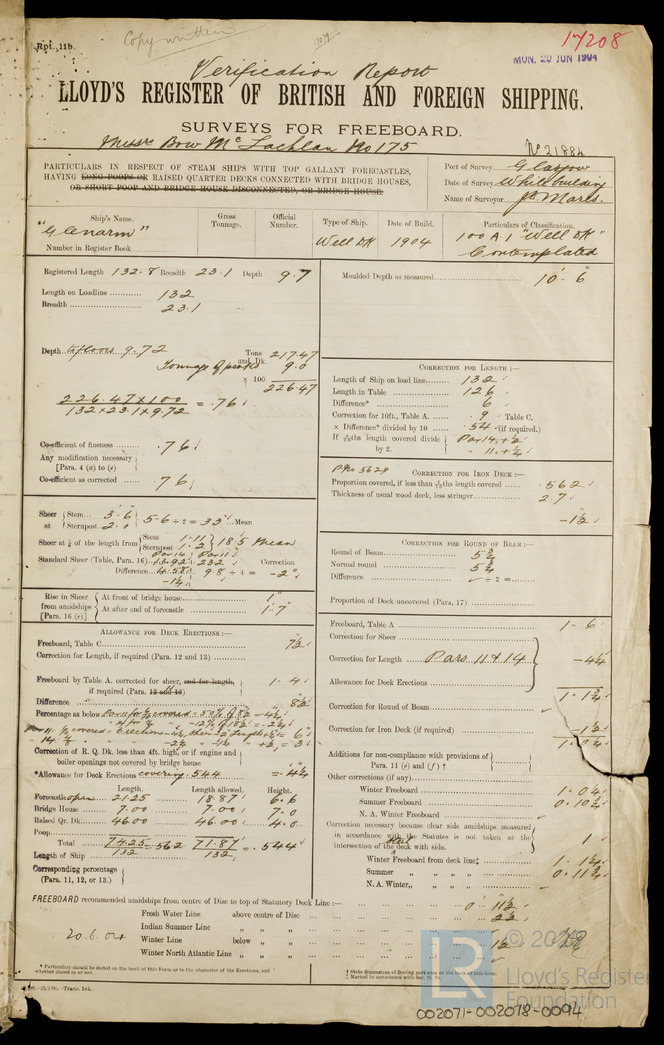 Rpt. 11b.
Copy written
17208
MON. 20 JUN 1904
Verification Report
LLOYD'S REGISTER OF BRITISH AND FOREIGN SHIPPING.
SURVEYS FOR FREEBOARD.
Messrs Bow McLachlan No 175
No 21884
PARTICULARS IN RESPECT OF STEAM SHIPS WITH TOP GALLANT FORECASTLES,
HAVING LONG POOPS OR RAISED QUARTER DECKS CONNECTED WITH BRIDGE HOUSES,
OR SHORT POOP AND BRIDGE HOUSE DISCONNECTED, OR BRIDGE HOUSE.
Port of Survey Glasgow
Date of Survey While building
Name of Surveyor
Ship's Name.
Gross Tonnage.
Official Number.
Type of Ship.
Date of Build.
Particulars of Classification.
"Glenarm"
Well Dk
1904
100 A.1 "Well Dk"
Contemplated
Number in Register Book
Registered Length 132.8 Breadth 23.1 Depth 9.7
Length on Loadline 132
Breadth 23.1
Moulded Depth as measured 10'-6"
Depth to floors 9.72
Tons und. Dk. 217.47
9.0
226.47
× 100
226.47×100
132×23.1×9.72
= .76
Co-efficient of fineness .76
Any modification necessary
[Para. 4 (a) to (e)
Co-efficient as corrected .76
CORRECTION FOR LENGTH :—
Length of Ship on load line 132
Length in Table 126
Difference* 6
Correction for 10ft., Table A. .9 Table C.
× Difference* divided by 10 .54 (if required.)
If 6/10ths length covered divide by 2.
Par 14, + ½
" 11, + ½
CORRECTION FOR IRON DECK :—
Proportion covered, if less than 7/10ths length covered .562
Thickness of usual wood deck, less stringer 2.7
-1½
Sheer at Stem 3.6
Sternpost 2.0
5.6 ÷ 2 = 33 Mean
Sheer at ⅛ of the length from Stem 1-11
Sternpost 1.2
18.5 Mean
Par 14 Par 11
Standard Sheer (Table, Para. 16) 23.2 Correction
Difference 9.8 ÷ 4 = -2"
CORRECTION FOR ROUND OF BEAM :—
Round of Beam 5¾
Normal round 5¾
Difference ÷ 2 =
Proportion of Deck uncovered (Para. 17)
Rise in Sheer from amidships [Para. 16 (e)]
At front of bridge house 1"
At after end of forecastle 1.7
ALLOWANCE FOR DECK ERECTIONS :—
Freeboard, Table C 7½
Correction for Length, if required (Para. 12 and 13)
Freeboard by Table A. corrected for sheer, and for length, if required (Para. 12 and 13) 1-4
Difference 8½
Percentage as below
Correction of R. Q. Dk. less than 4ft. high, or if engine and
boiler openings not covered by bridge house
*Allowance for Deck Erections covering .544 = -4¼
Length. Length allowed. Height.
Forecastle open 21.25 18.87 6.6
Bridge House 7.00 7.00 7.0
Raised Qr. Dk. 46.00 46.00 4.0
Poop
Total 74.25 = .562 71.87 = .544
Length of Ship 132 132
Corresponding percentage
(Para. 11, 12, or 13.)
Freeboard, Table A 1-6
Correction for Sheer
Correction for Length Pars 11 & 14 -4¼
Allowance for Deck Erections
1-1¾
Correction for Round of Beam
Correction for Iron Deck (if required) -1½
1.0¼
Additions for non-compliance with provisions of
Para. 11 (e) and (f) †
Other corrections (if any)
Winter Freeboard 1.0¼
Summer Freeboard 0.10¼
N. A. Winter Freeboard
Correction necessary because clear side amidships measured
in accordance with the Statutes is not taken at the
intersection of the deck with side. 1
Winter Freeboard from deck line‡ 1.1¼
Summer " " " " 0.11¼
N. A. Winter " " " "
FREEBOARD recommended amidships from centre of Disc to top of Statutory Deck Line :— 0' 11½
Fresh Water Line above centre of Disc 2½
Indian Summer Line " "
Winter Line below " 1½
Winter North Atlantic Line " "
20.6.04
* Particulars should be stated on the back of this Form as to the character of the Erections, and whether closed in or not.
† State dimensions of freeing port area on the back of this form.
‡ Marked in accordance with Sec.
Trans. Ink.
LR
© 20
Lloyd's Register
Foundation
002071-002078-0094